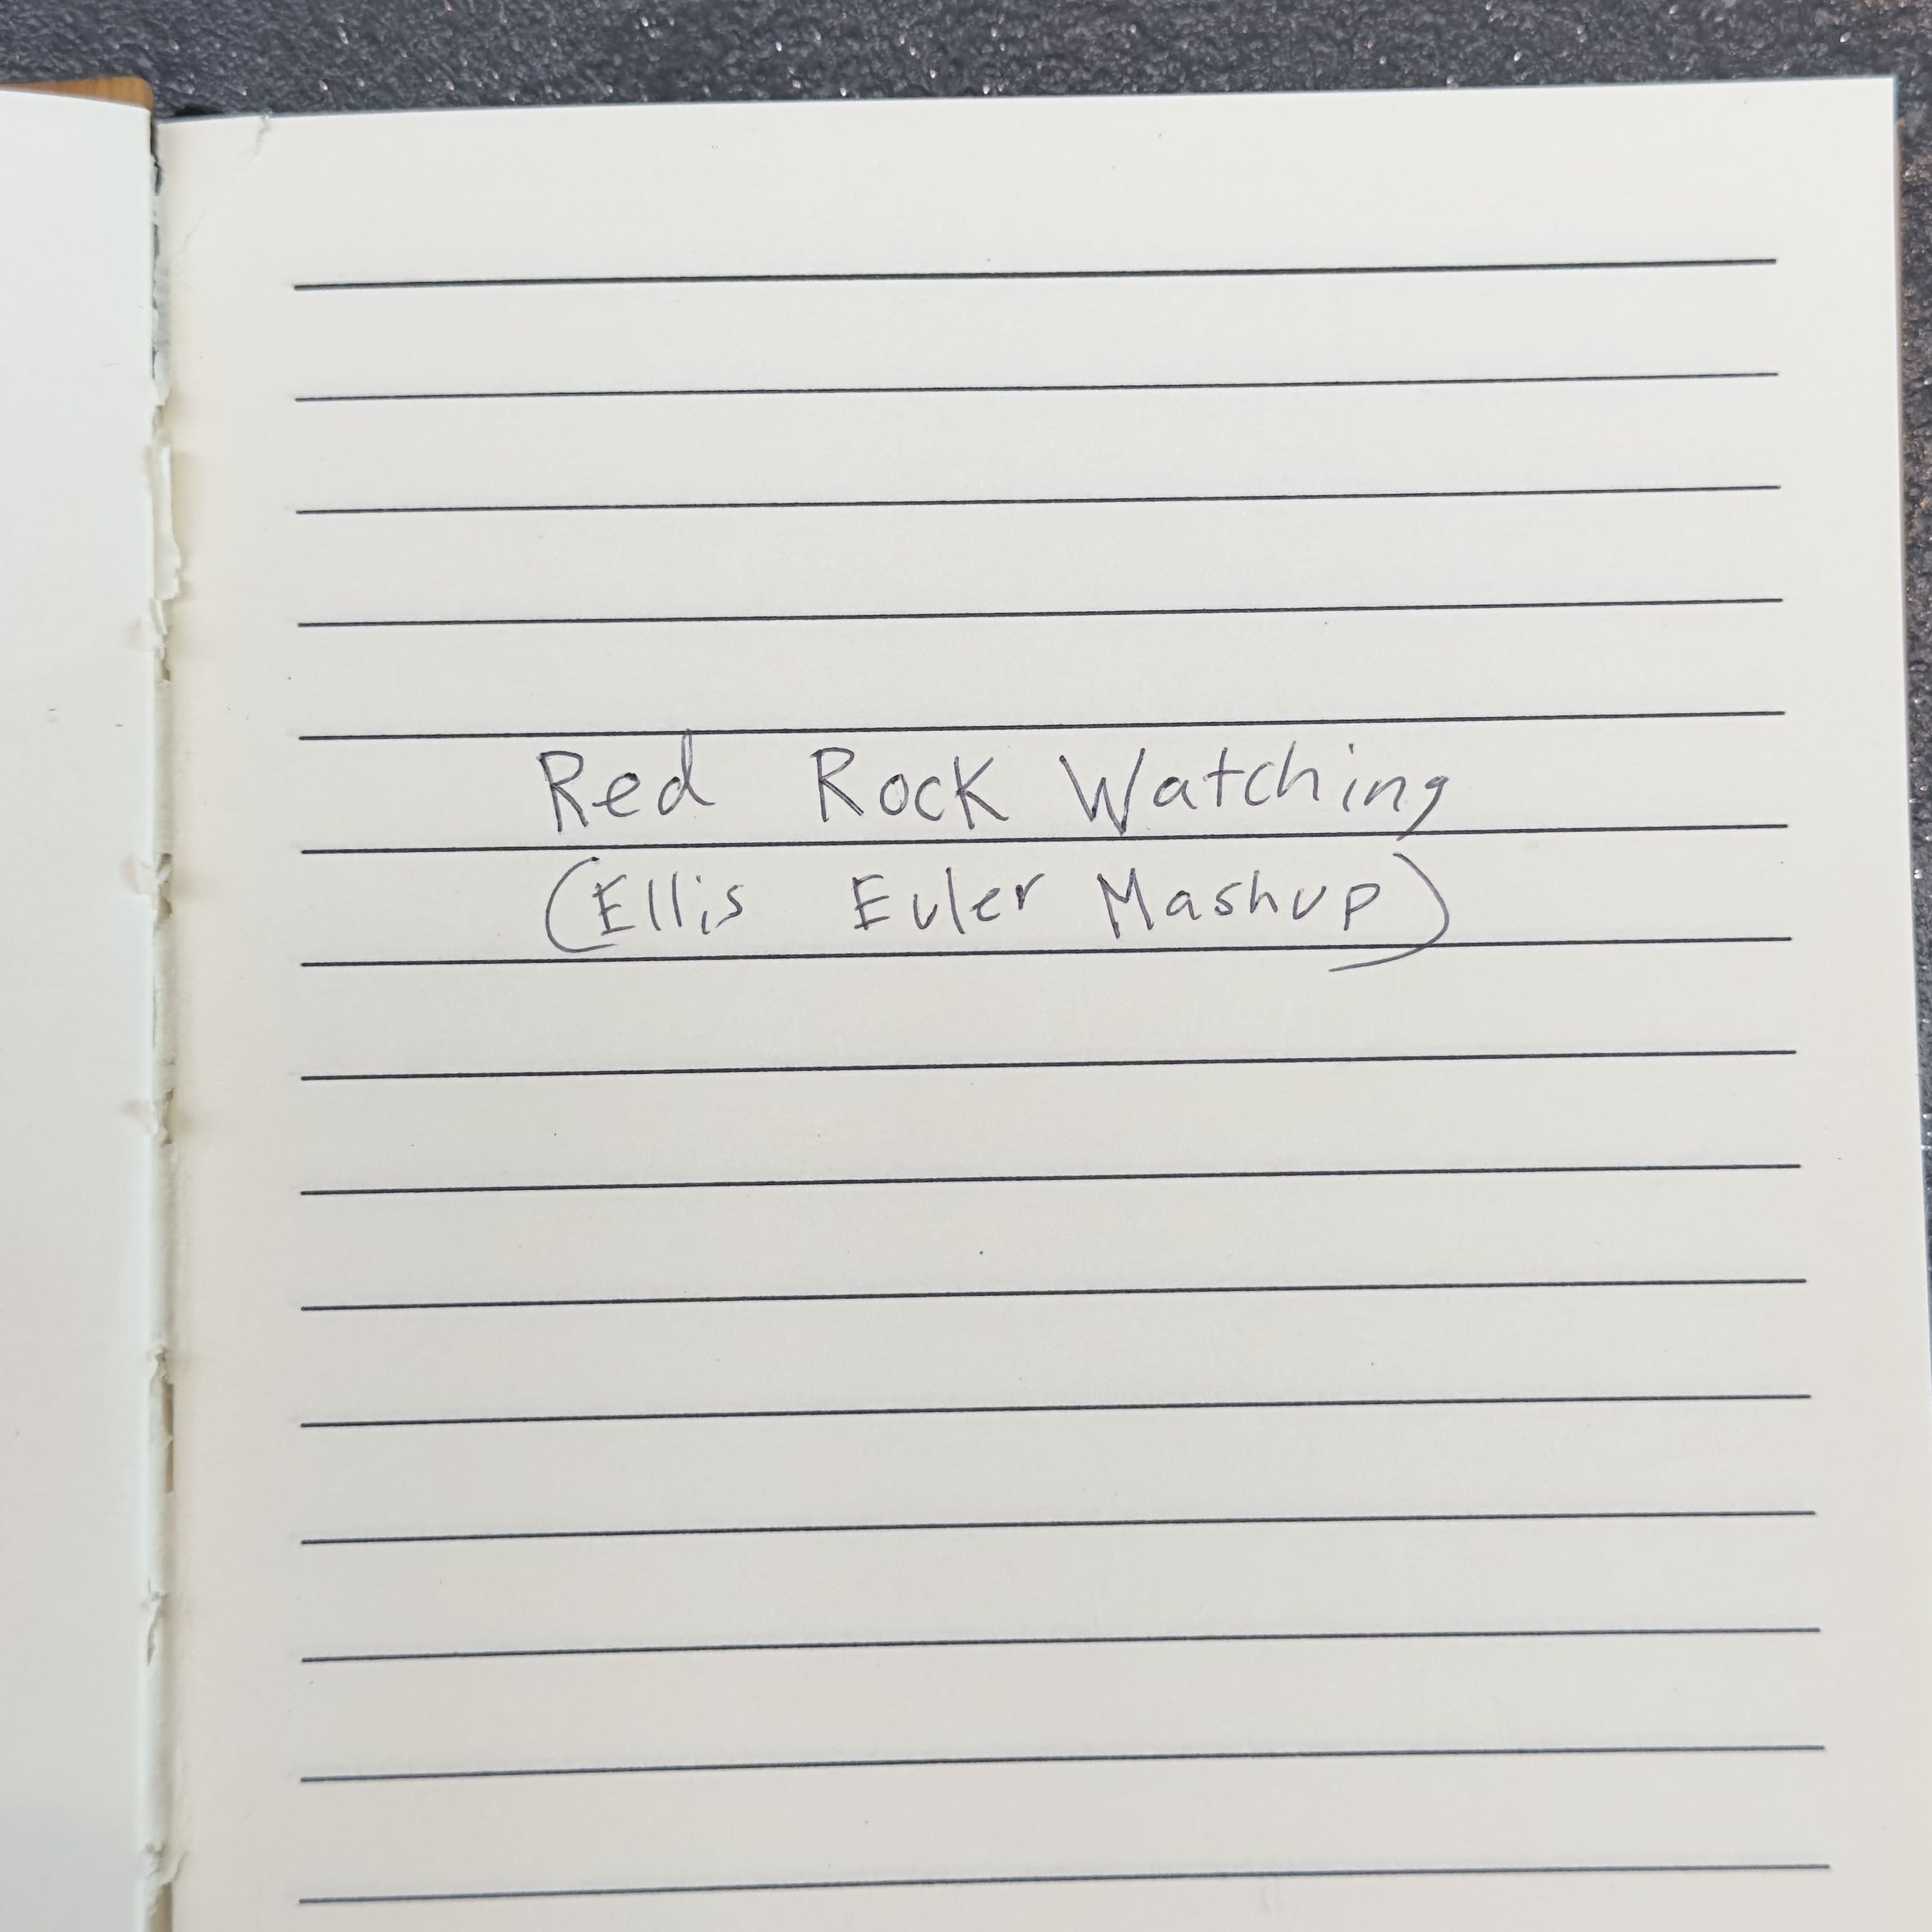 Red Rock Watching
(Ellis Euler Mashup)